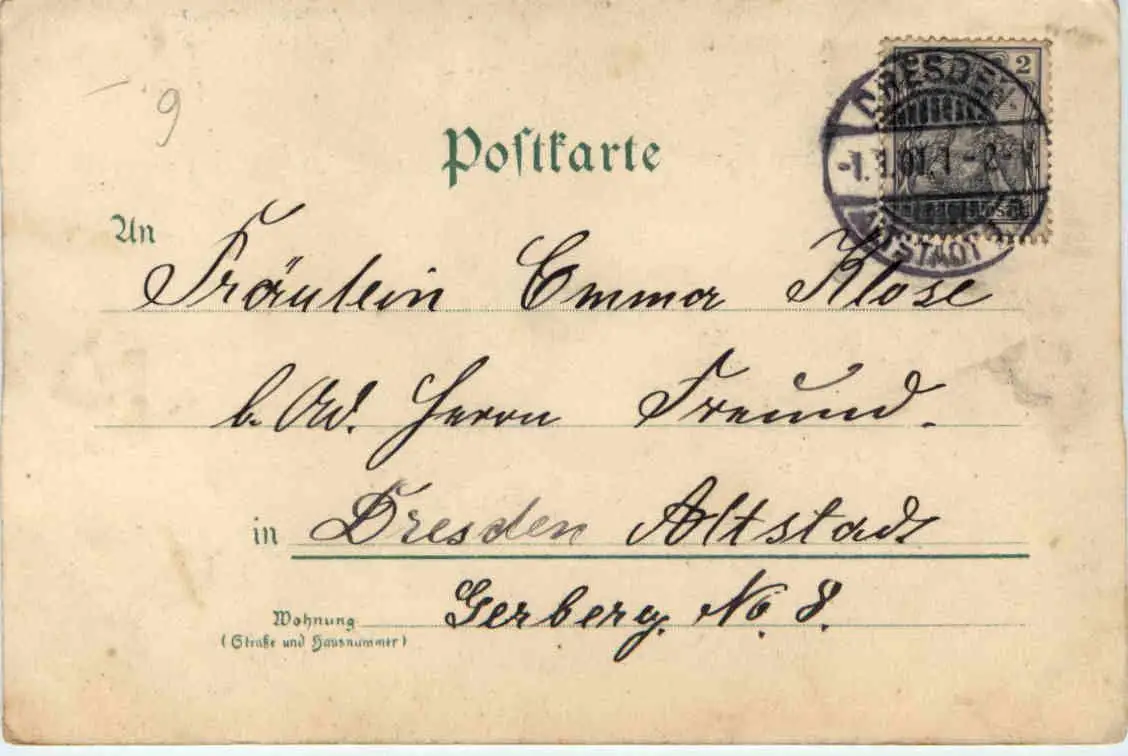 9
Postkarte
2
DRESDEN
-1.1.01.1-2-N.
ALTSTADT
An
Fräulein Emma Klose
b. Ad. Herrn Freund.
in Dresden Altstadt
Gerberg. No. 8.
Wohnung
(Straße und Hausnummer)